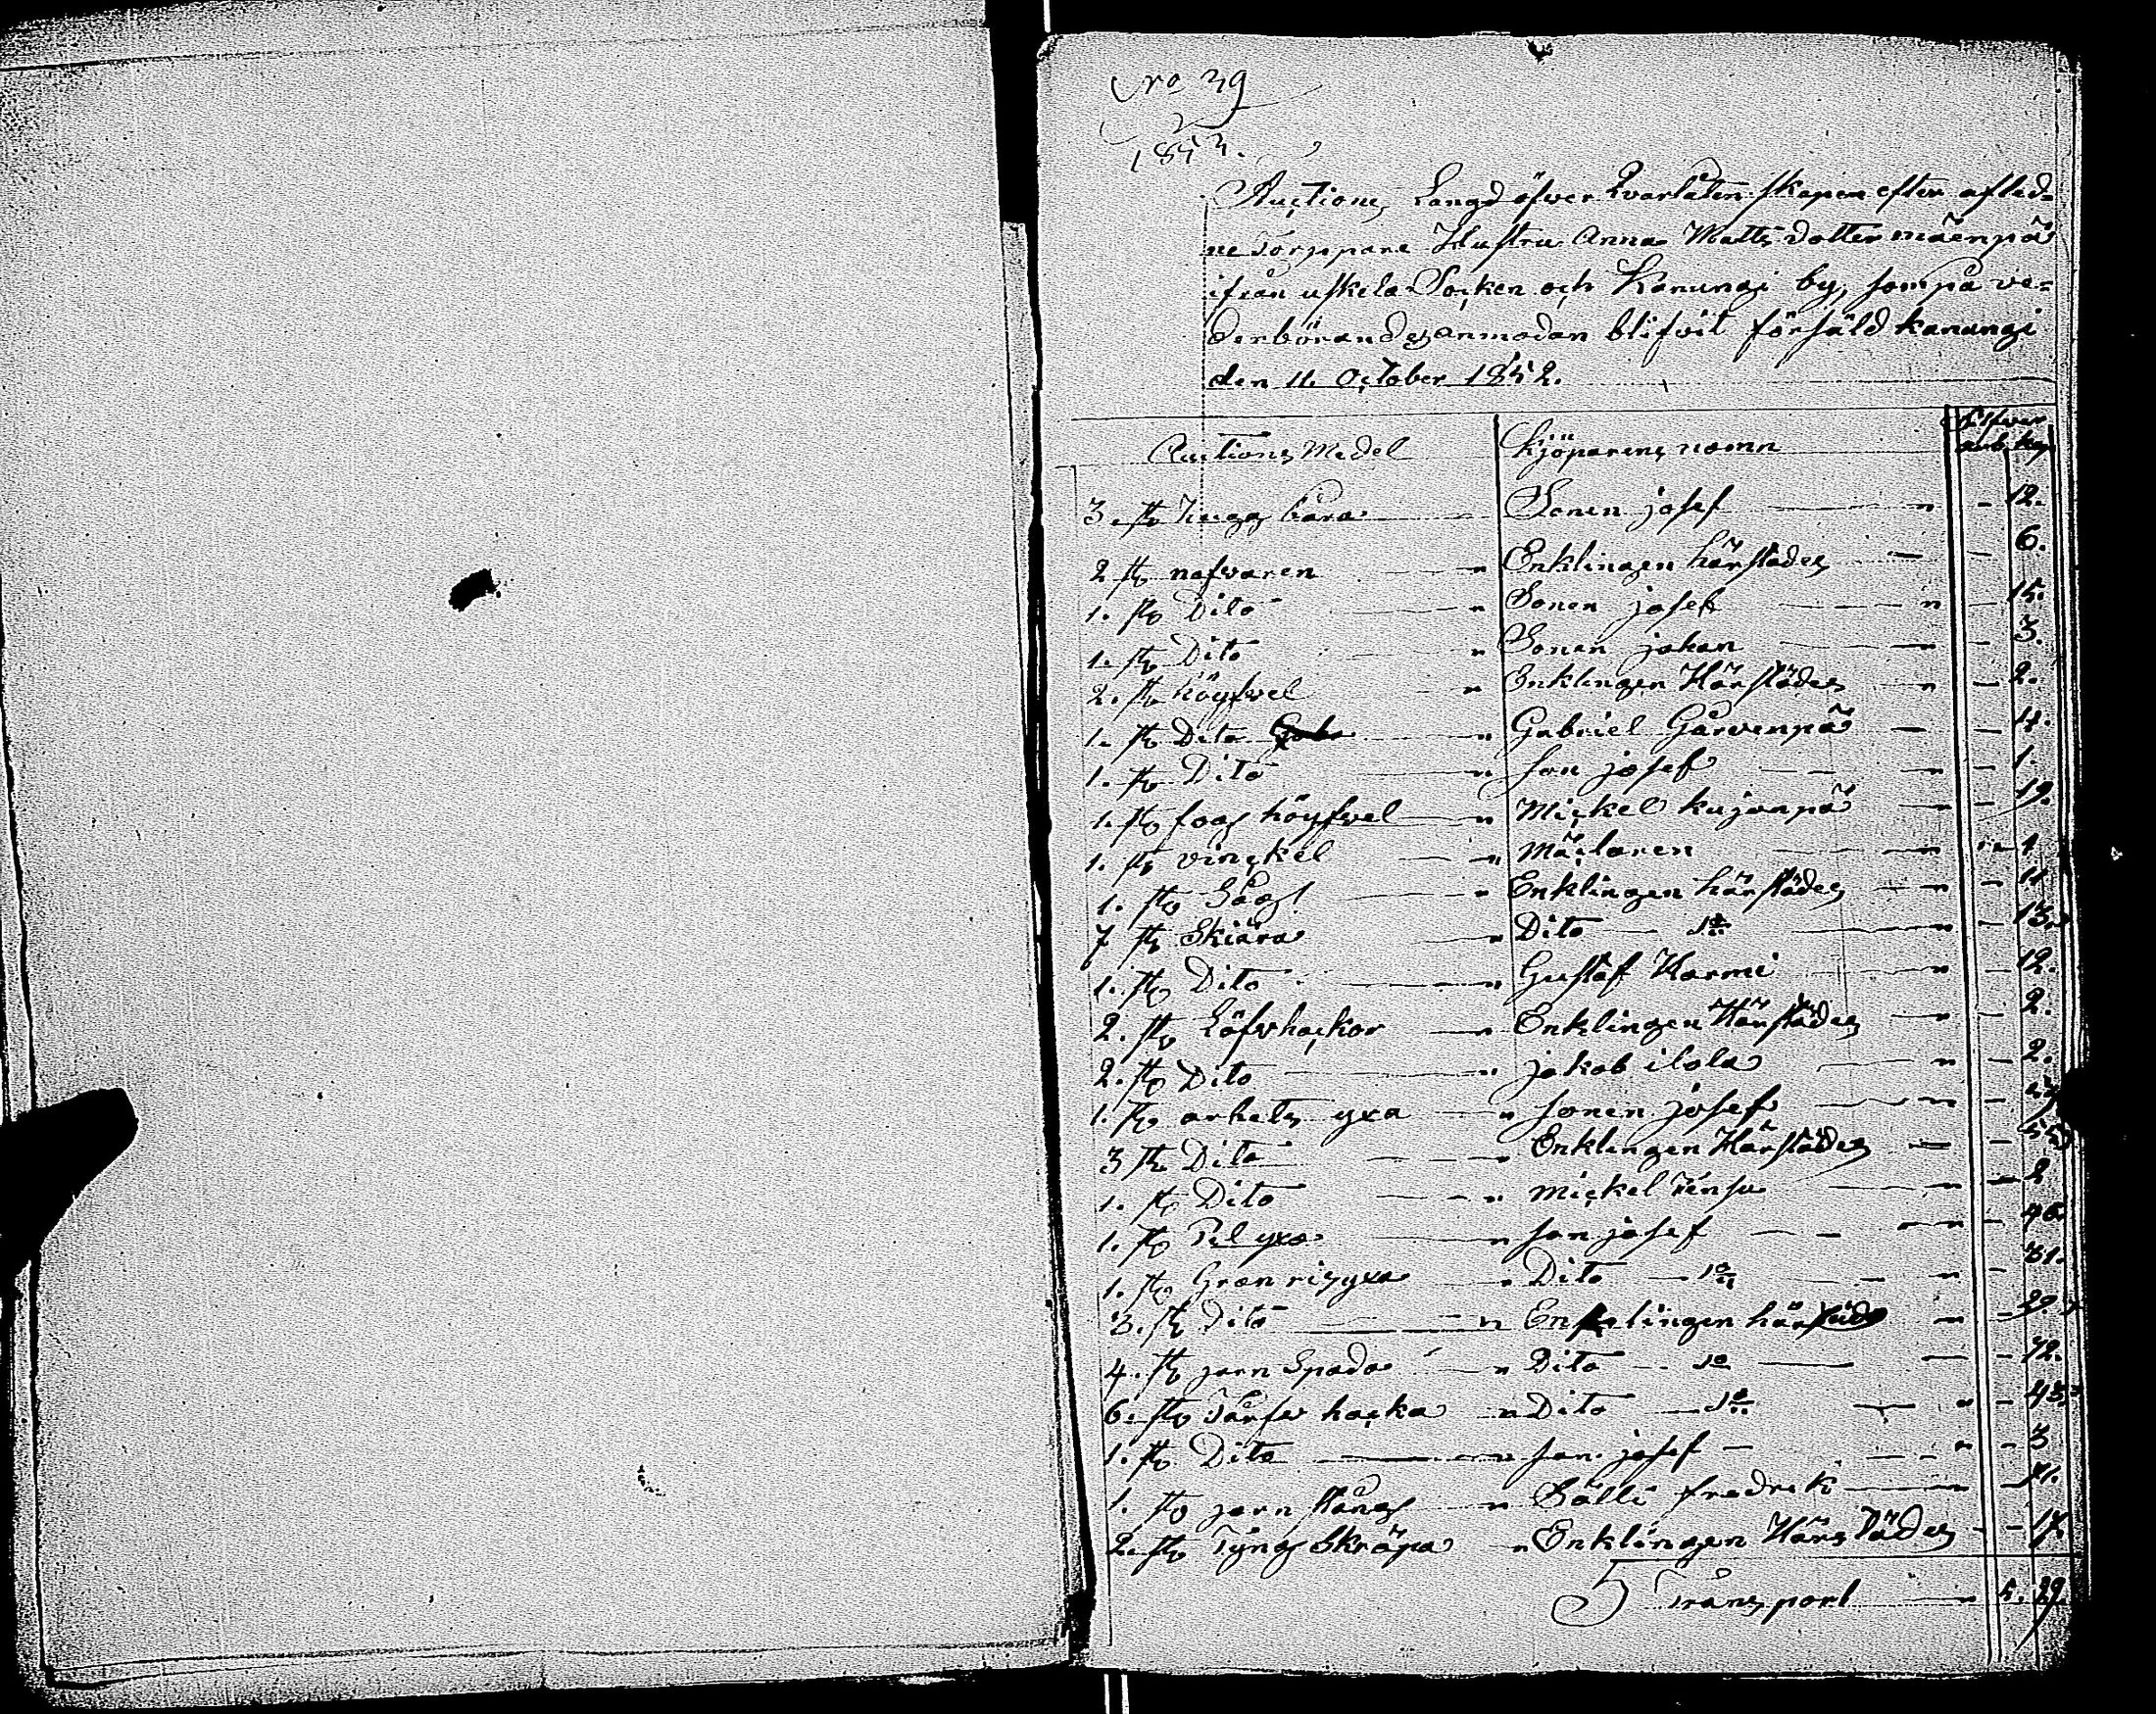 No 39
1853.
Auctions Langd öfver Qvarlåtenskapen efter afled-
ne Torppare Hustru Anna Matts dotter mäenpä
ifrån uskela Socken och Kanungi by, som på ve-
derbörandes anmodan blifvit försåld kanungi
den 11. October 1852.
Auctions Medel Kjöparens namn Silfver rub. kop
3 st hugg bära Sonen josef 12.
2 st nafvaren Enklingen härstädes 6.
1. st Dito Sonen josef 15.
1. st Dito Sonen johan 3.
2. st höyfvel Enklingen Härstädes 2.
1. st Dito Gabriel Garvenpä
1. st Dito Son josef 1.
1. st fog höyfvel Mickel kujanpä 19.
1. st vinckel Mäclaren 1
1. st Såg Enklingen härstädes 11
7 st Skiära Dito do 13.
1. st Dito Gustaf Harmi 12.
2. st Löfvhackor Enklingen Härstädes 2.
2. st Dito jakob ilola 2.
1. st arbets yxa Sonen josef
3 st Dito Enklingen Härstädes
1. st Dito mickel 2
1. st Pil yxa Son josef 46.
1. st Gran ris yxa Dito do 31.
3. st Dito Enklingen 29.
4. st jern Spada Dito do 72.
6. st Tårfv hacka Dito do 45.
1. st Dito Son josef 3
1. st jern stång Sälli fredrik 71.
2. st Tyng Skräpa Enklingen Härstädes 17.
5 Transport 5. 39.